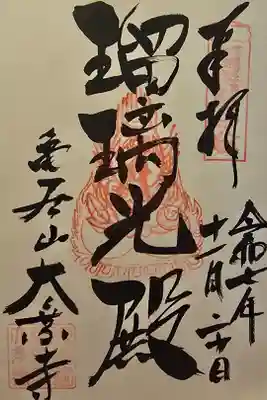 奉拝
令和七年
十一月二十日
瑠璃光殿
亀居山大乗寺